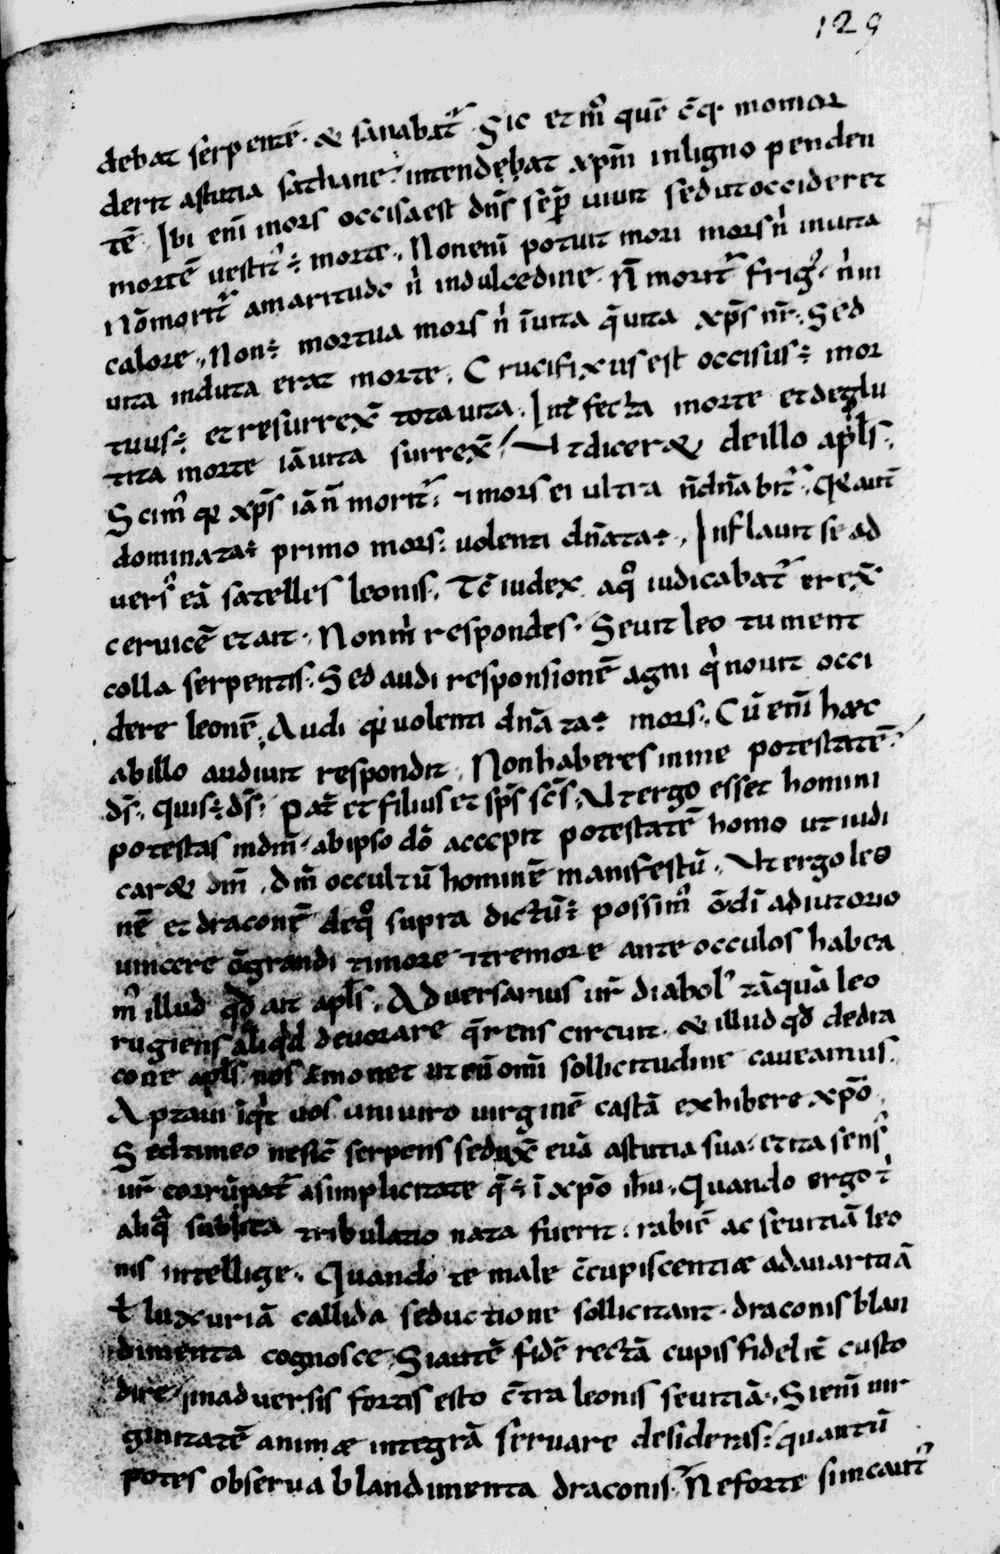 129
debat serpentē · & sanabat᷑ · Sic et m̊ quē c̄q; momor
derit astutia sathane · intendebat xpm̄ inligno penden
tē · Ibi eni᷑ mors occisaest dn̄s sēp uiuit sed utoccideret
mortē uestit᷑ ÷ morte · Noneni᷑ potuit mori mors n̄ inuita
Nōmorit᷑ amaritudo n̄ indulcedine · N̄ morit᷑ frig᷑ · n̄ in
calore · Non ÷ mortua mors n̄ īuita q̄ uita xp̄s nr̄ · Sed
uita induta erat morte · Crucifixus est occisus ÷ mor
tuus ÷ et resurrex̄ tota uita · Int̄fecta morte et deglu
tita morte iā uita surrex̄ / Ut dicer& deillo apl̄s ·
Scim᷑ qp xp̄s iā n̄ morit᷑ · ⁊ mors ei ultra n̄ dn̄abit᷑ · Q̄ aut̄
dominata ÷ primo mors · uolenti dn̄ata ÷ · Inflauit se ad
uers᷑ eā satelles leonis · Tc̄ iudex aq̊ iudicabat᷑ erex̄
ceruicē et ait · Nonm̄ respondes · Seuit leo tument
colla serpentis · Sed audi responsionē agni q̇ nouit occi
dere leonē · Audi qp uolenti dn̄ata ÷ mors · Cū eni᷑ haec
abillo audiuit respondit · Nonhaberes inme potestatē ·
ds̄ · Quis ÷ ds̄ · Pat̄ et filius et sp̄s sc̄s · Ut ergo esset homini
potestas indm̄ · abipso dō accepit potestatē homo ut iudi
car& dm̄ · dm̄ occultū hominē manifestū · Ut ergo leo
nē et draconē deq̊ supra dictū ÷ possim᷑ c̄ di᷑ adiutorio
uincere c̄grandi timore ⁊ tremore ante occulos habea
m᷑ illud qd̄ ait apl̄s · Aduersarius ur̄ diabol᷑ tāquā leo
rugiens aliqd̄ deuorare q̄rens circuit · & illud qd̄ dedra
cone apl̄s nos ammonet ut cū omi᷑ sollicitudine caueamus ·
Aptaui īqt̄ uos uniuiro uirginē castā exhibere xp̄o ·
Sed timeo nesic̄ serpens sedux̄ euā astutia sua · et ita sens᷑
ur̄ corrūpat᷑ asimplicitate q̄ ÷ ī xp̄o ih̄u · Quando ergo t᷑
aliq̄ subita tribulatio nata fuerit · rabiē ac seuitiā leo
nis intellige · Quando te male c̄cupiscentiae adauaritiā
ł luxuriā callida seductione sollicitant · draconis blan
dimenta cognosce · Si autē fidē rectā cupis fidelit̄ custo
dire · inaduersis fortis esto c̄tra leonis seuitiā · Si eni᷑ uir
ginitatē animae integrā seruare desideras · quantū
potes obserua blandimenta draconis · Neforte sim caut᷑